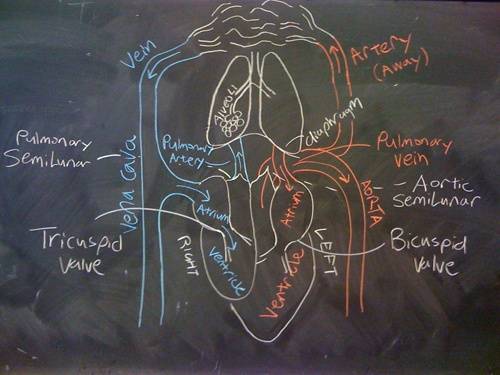 Vein
Artery
(Away)
Alveoli
diaphragm
Pulmonary
SemiLunar
Vena Cava
Pulmonary
Artery
Pulmonary
Vein
Atrium
Atrium
AORTA
Aortic
SemiLunar
Tricuspid
Valve
RIGHT
Ventricle
Ventricle
LEFT
Bicuspid
Valve